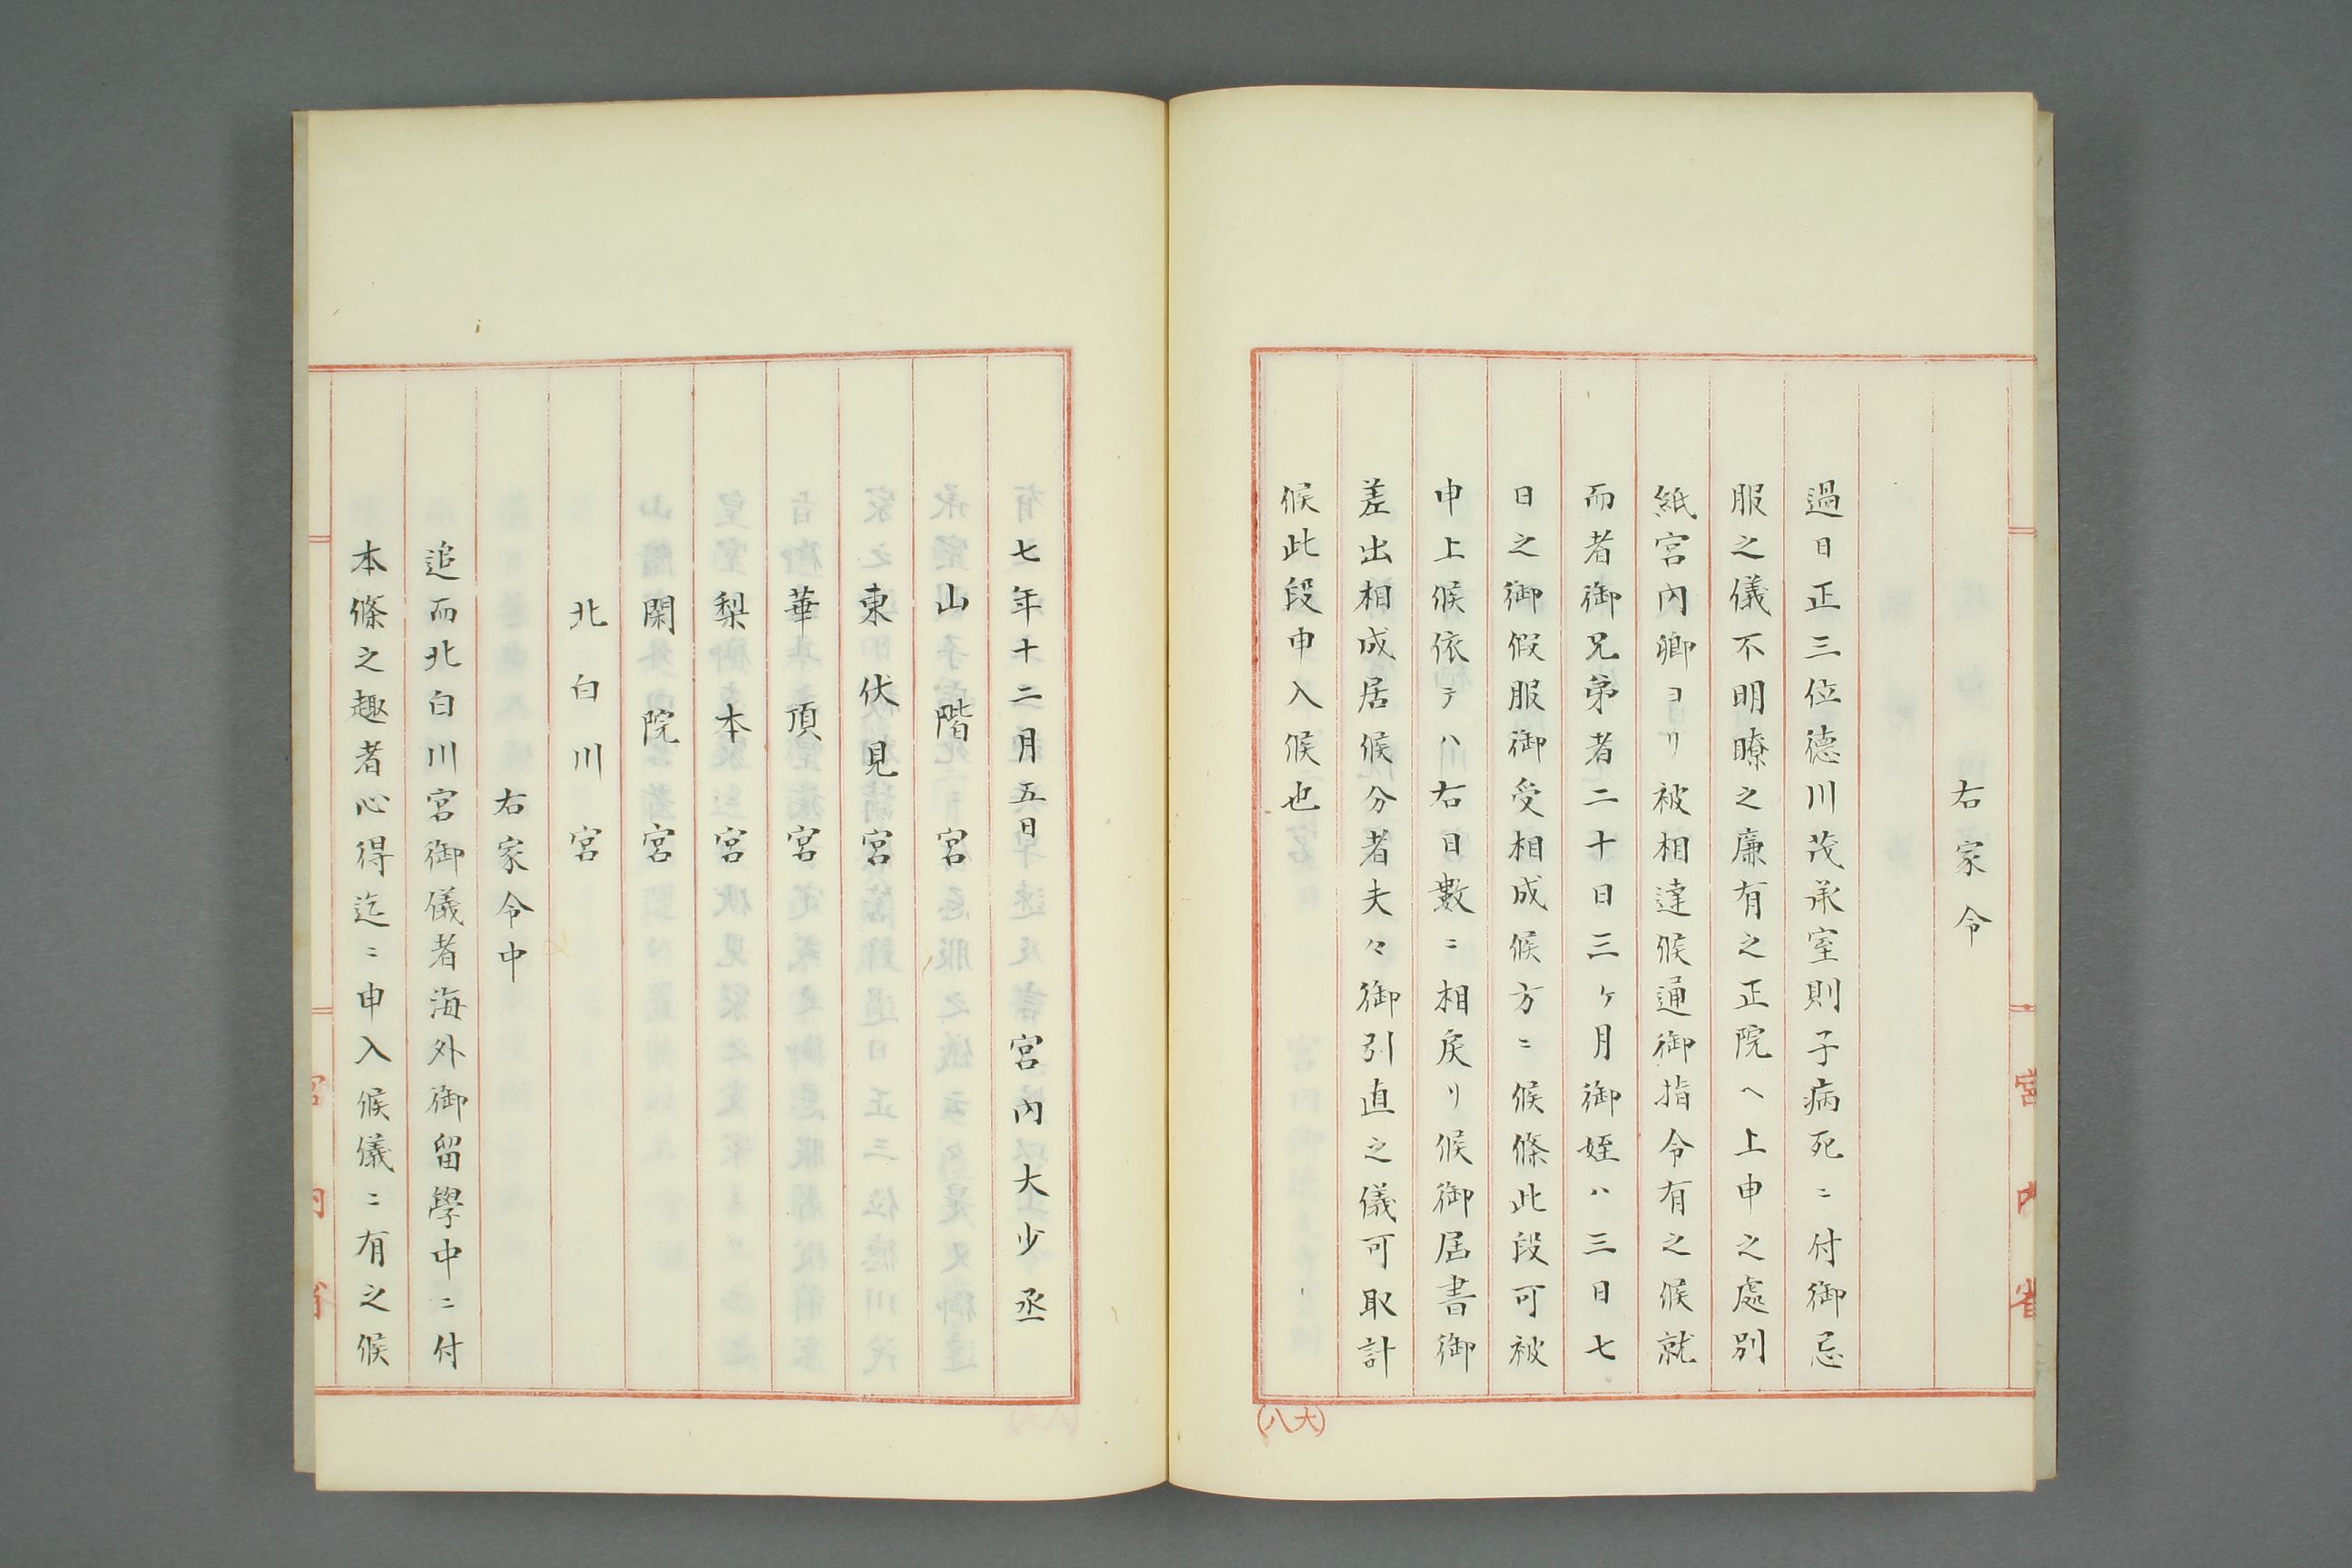 右家令
過日正三位德川茂承室則子病死ニ付御忌
服之儀不明瞭之廉有之正院ヘ上申之處別
紙宮内卿ヨリ被相達候通御指令有之候就
而者御兄弟者二十日三ヶ月御姪ハ三日七
日之御假服御受相成候方ニ候條此段可被
申上候依テハ右日數ニ相戻リ候御届書御
差出相成居候分者夫々御引直之儀可取計
候此段申入候也
宮内省
(八大)
七年十二月五日 宮内大少丞
山階宮
東伏見宮
華頂宮
梨本宮
閑院宮
北白川宮
右家令中
追而北白川宮御儀者海外御留學中ニ付
本條之趣者心得迄ニ申入候儀ニ有之候
宮内省